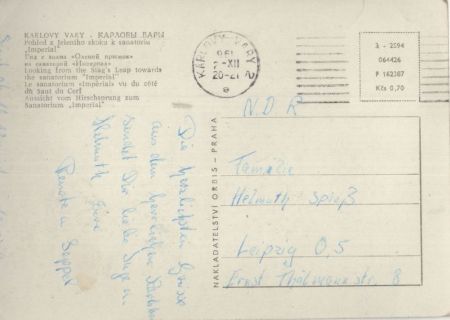 KARLOVY VARY - КАРЛОВЫ ВАРЫ
Pohled z Jeleního skoku k sanatoriu
"Imperial"
Вид с
из санатория «Империал»
Looking from the Stag's Leap towards
the sanatorium "Imperial"
Le sanatorium «Impérial» vu du côté
du Saut du Cerf
Aussicht vom Hirschsprung zum
Sanatorium „Imperial"
KARLOVY VARY 2
-XII
20-21
e
3 - 2594
064426
P 162307
Kčs 0,70
NAKLADATELSTVÍ ORBIS - PRAHA
N.D.R
Familie
Helmuth Spieß
Leipzig O,5
Ernst Thälmannstr. 8
Die herzlichsten Grüsse
aus dem herrlichen
sendet Dir liebe
Helmuth
Renate u.